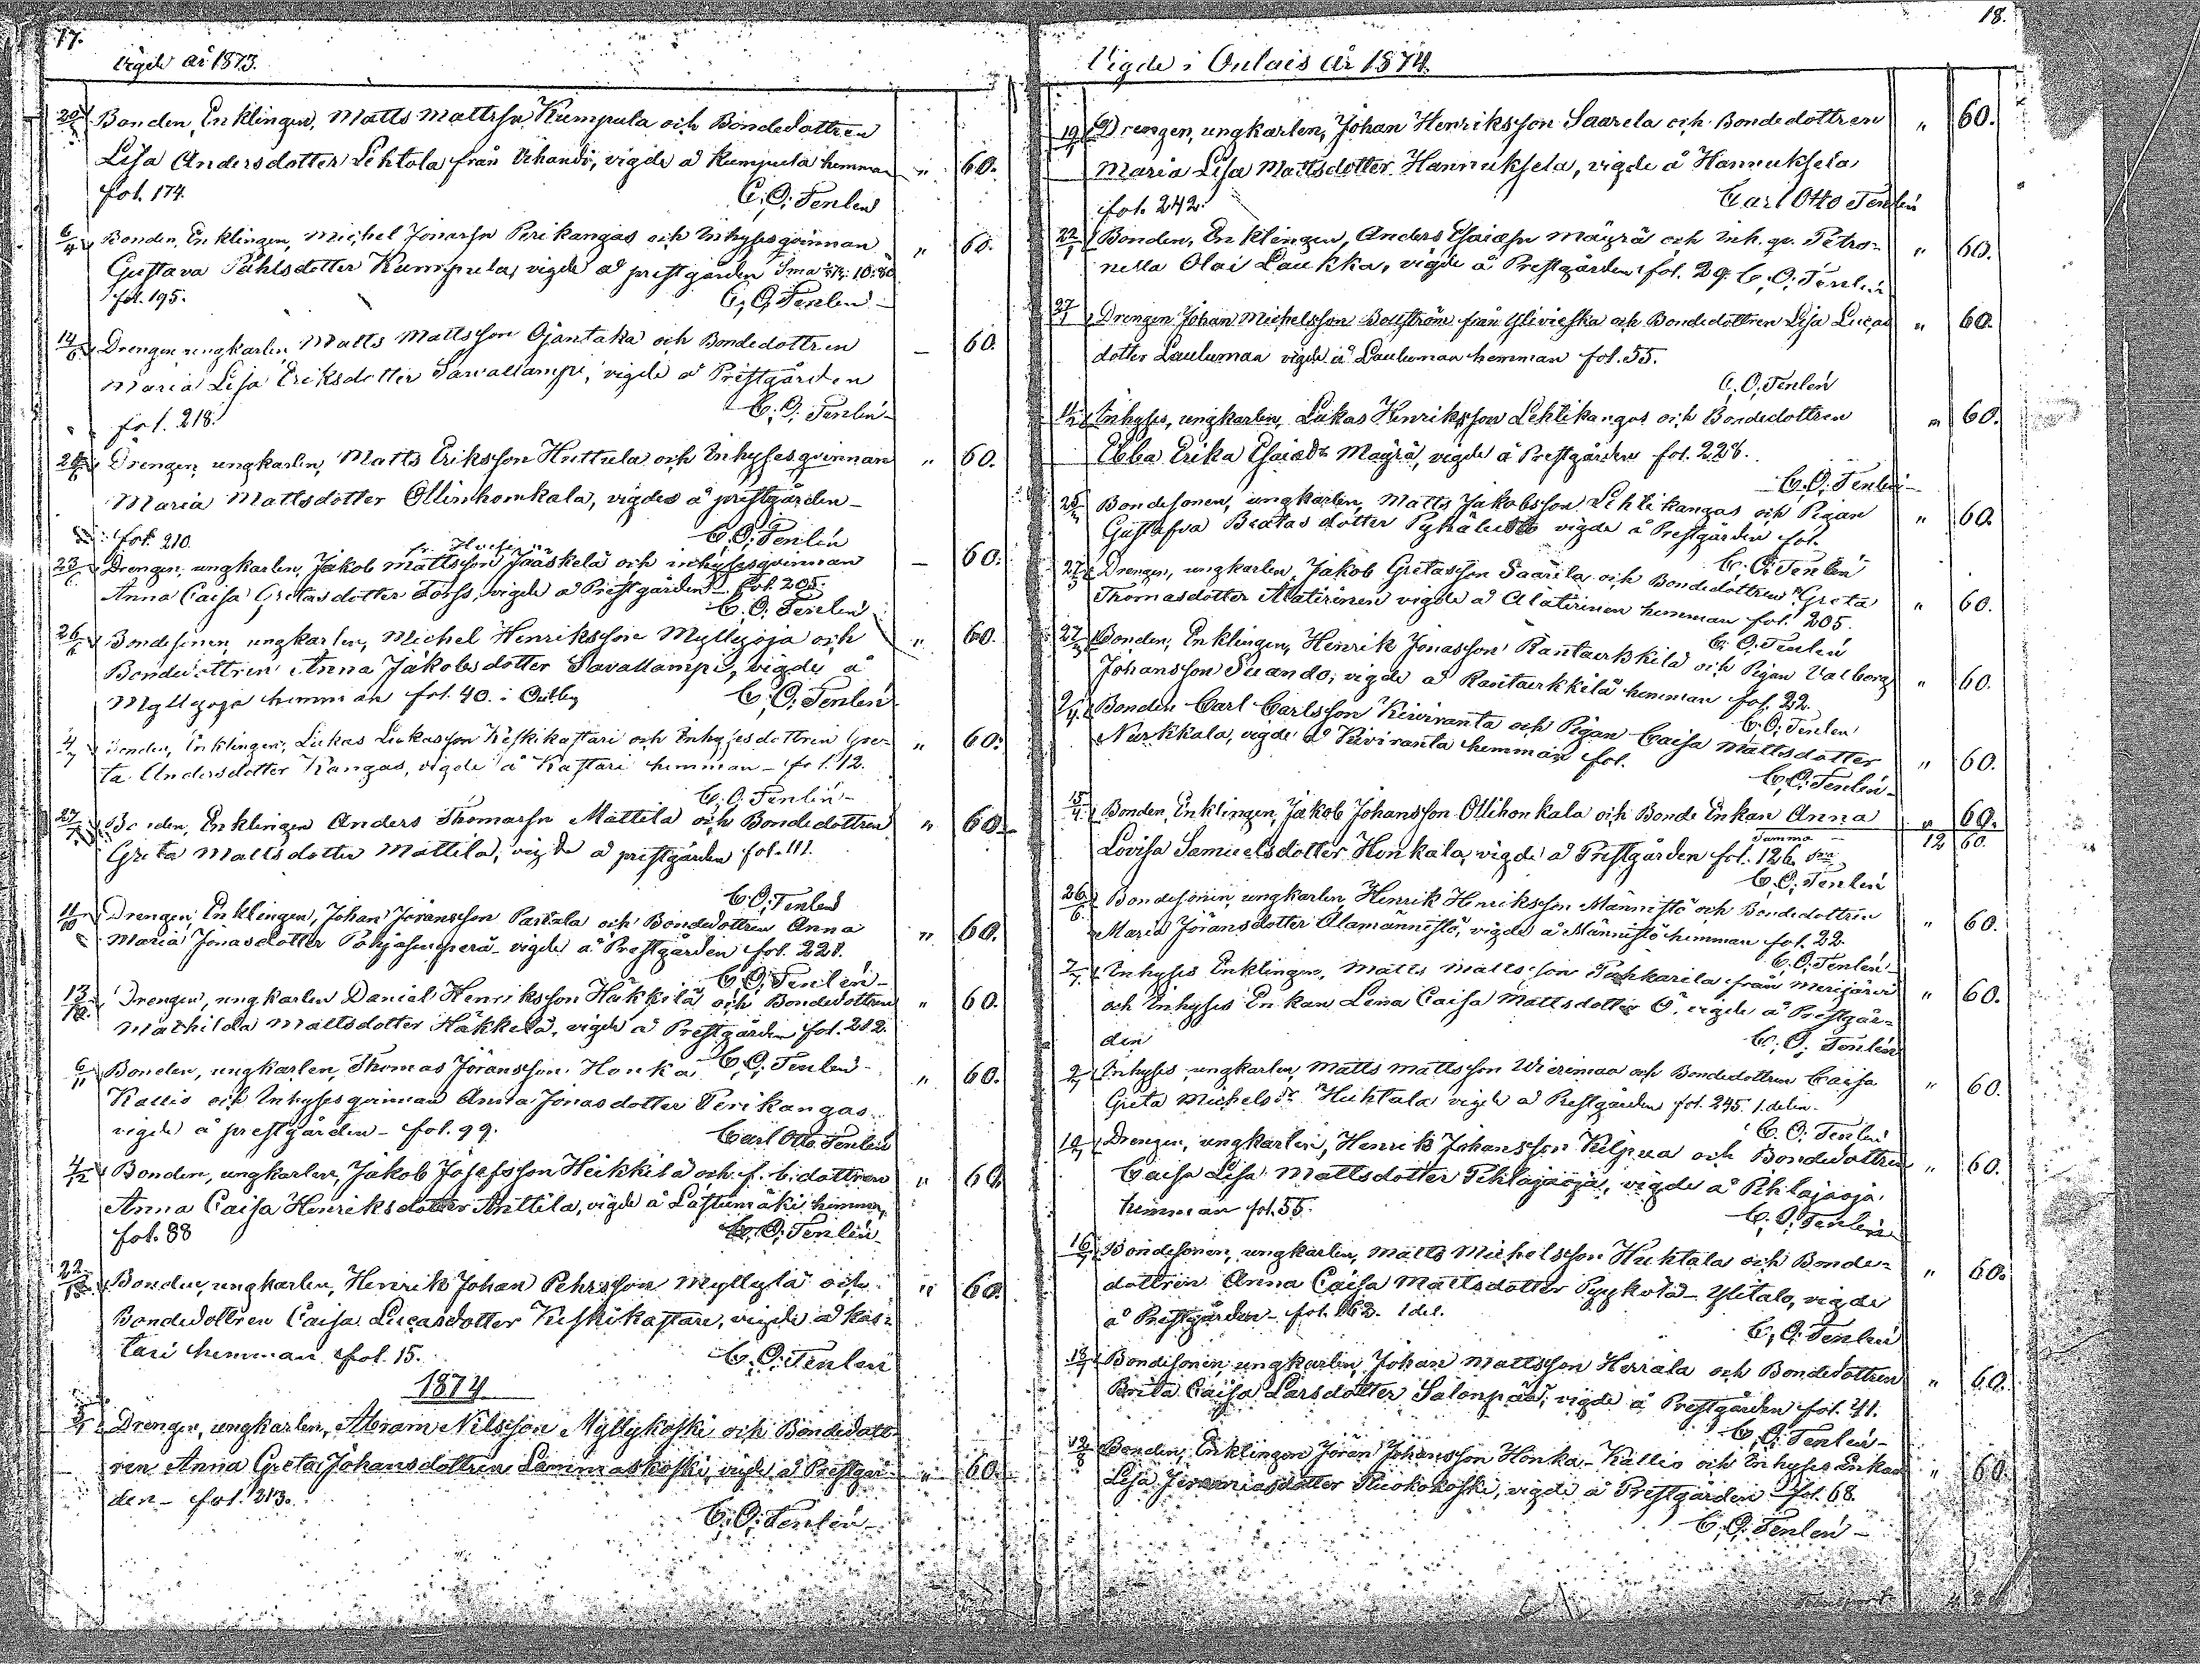 17.
Vigde år 1873.
Bonden, Enklingen, Matts Mattsson Kumpula och Bondedottren
Lisa Andersdotter Lehtola från Vihandi, vigde å Kumpula hemman " 60.
fol. 174. C. O. Fenlén
6/4 Bonden, Enklingen, Michel Jonasson Perikangas och Inhysesqvinnan " 60.
Gustava Påhlsdotter Kumpula, vigde å prestgården
fol. 195. C. O. Fenlén
Drengen ungkarlen Matts Mattsson Ojantaka och Bondedottren — 60.
Maria Lisa Eriksdotter Savallampi, vigde å Prestgården
fol. 218. C. O. Fenlén
Drengen, ungkarlen, Matts Eriksson Huttula och Inhysesqvinnan " 60.
Maria Mattsdotter Ollinhonkala, vigdes å prestgården
fol. 210. C. O. Fenlén
23/6 Drengen, ungkarlen, Jakob Mattsson Jääskelä och inhysesqvinnan — 60.
Anna Caisa Gretasdotter Forss, vigde å Prestgården fol. 205.
C. O. Fenlén
26/6 Bondesonen, ungkarlen, Michel Henriksson Myllyoja och " 60.
Bondedottren Anna Jakobsdotter Savallampi, vigde å
Myllyoja hemman fol. 40. i Oulby C. O. Fenlén
4/7 Bonden, Enklingen, Lukas Lukasson Keskikastari och Inhysesdottren Gre- " 60.
ta Andersdotter Kangas, vigde å Kastari hemman - fol. 12.
C. O. Fenlén
27/7 Bonden, Enklingen Anders Thomasson Mattila och Bondedottren " 60.
Greta Mattsdotter Mattila, vigde å prestgården fol. 111.
C. O. Fenlén
11/10 Drengen, Enklingen, Johan Jöransson Parkala och Bondedottren Anna " 60.
Maria Jonasdotter Pohjasenperä - vigde å Prestgården fol. 228.
C. O. Fenlén
13/10 Drengen, ungkarlen Daniel Henriksson Häkkilä och Bondedottren " 60.
Mathilda Mattsdotter Häkkelä, vigde å Prestgården fol. 212.
C. O. Fenlén
6/11 Bonden, ungkarlen, Thomas Jöransson Honka " 60.
Kallio och Inhysesqvinnan Anna Jonasdotter Perikangas
vigde å prestgården - fol. 99. Carl Otto Fenlén
4/12 Bonden, ungkarlen, Jakob Josefsson Heikkilä och f. b. dottren " 60.
Anna Caisa Henriksdotter Anttila, vigde å Lastumäki hemman,
fol. 88 C. O. Fenlén
22/12 Bonden, ungkarlen, Henrik Johan Pehrsson Myllylä och " 60.
Bondedottren Caisa Lucasdotter Keskikastari, vigde å Kas-
tari hemman fol. 15. C. O. Fenlén
1874
Drengen, ungkarlen, Abram Nilsson Myllykoski och Bondedott-
ren Anna Greta Johansdottren Lammaskoski, vigde å Prestgår- " 60.
den - fol. 213.
C. O. Fenlén
18.
Vigde i Oulais år 1874.
19/1 Drengen, ungkarlen, Johan Henriksson Saarela och Bondedottren " 60.
Maria Lisa Mattsdotter Hannuksela, vigde å Hannuksela
fol. 242. Carl Otto Fenlén
22/1 Bonden, Enklingen, Anders Esaiæsn Mäyrä och Inh. qv. Petro- " 60.
nella Olai Laukka, vigde å Prestgården fol. 29. C. O. Fenlén
27/1 Drengen Johan Michelsson Boström från Ylivieska och Bondedottren Lisa Lucas " 60.
dotter Lauluman vigde å Lauluman hemman fol. 55.
C. O. Fenlén
11/2 Inhyses, ungkarlen, Lukas Henriksson Lehtikangas och Bondedottren " 60.
Ebba Erika Esaiædr Mäyrä, vigde å Prestgården fol. 228.
C. O. Fenlén
Bondesonen, ungkarlen, Matts Jakobsson Lehtikangas och Pigan " 60.
Gustafva Beatasdotter vigde å Prestgården fol.
C. O. Fenlén
Drengen, ungkarlen, Jakob Gretasson Saarela och Bondedottren Greta
Thomasdotter Alatirinen vigde å Alatirinen hemman fol. 205. " 60.
C. O. Fenlén
27/3 Bonden, Enklingen, Henrik Jonasson Rantaerkkilä och Pigan Valborg " 60.
Johansson Suando, vigde å Rantaerkkilä hemman fol. 22.
C. O. Fenlén
Bonden Carl Carlsson Kiviranta och Pigan Caisa Mattsdotter " 60.
Nurkkala, vigde å Kiviranta hemman fol.
C. O. Fenlén
Bonden, Enklingen, Jakob Johansson Ollihonkala och Bonde Enkan Anna " 60.
Lovisa Samuelsdotter Honkala, vigde å Prestgården fol. 126. Summa 12 60.
C. O. Fenlén
26/6 Bondesonen, ungkarlen, Henrik Henriksson Männistö och Bondedottren " 60.
Maria Jöransdotter Alamännistö, vigde å Männistö hemman fol. 22.
C. O. Fenlén
7/7 Inhyses Enklingen, Matts Mattsson Pahkarila från Merijärvi " 60.
och Inhyses Enkan Lena Caisa Mattsdotter O, vigde å Prestgår-
den C. O. Fenlén
Inhyses, ungkarlen Matts Mattsson Wierimaa och Bondedottren Caisa " 60.
Greta Michelsdr Huhtala vigde å Prestgården fol. 245. 1. delen.
C. O. Fenlén
Drengen, ungkarlen, Henrik Johansson Kilpua och Bondedottren " 60.
Caisa Lisa Mattsdotter Pihlajaoja, vigde å Pihlajaoja
hemman fol. 55. C. O. Fenlén
Bondesonen, ungkarlen, Matts Michelsson Huhtala och Bonde- " 60.
dottren Anna Caisa Mattsdotter Pyykolä - Ylitalo, vigde
å Prestgården - fol. 162. 1 del. C. O. Fenlén
Bondesonen ungkarlen, Johan Mattsson Herrala och Bondedottren " 60.
Brita Caisa Larsdotter Salonpää, vigde å Prestgården fol. 41.
C. O. Fenlén
12/8 Bonden, Enklingen Jöran Johansson Honka-Kallio och Inhyses Enkan " 60.
Lisa Jeremiasdotter Ruokokoski, vigde å Prestgården fol. 68.
C. O. Fenlén